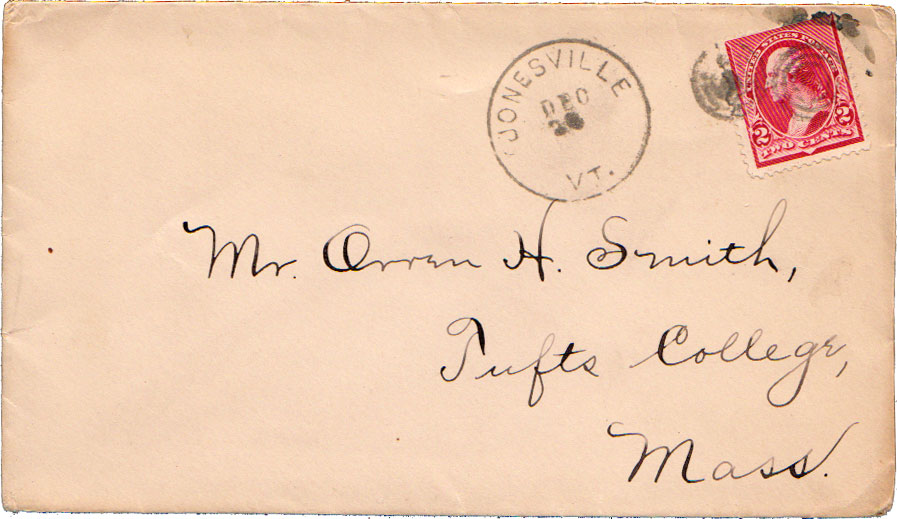 JONESVILLE
DEC
VT.
UNITED STATES POSTAGE
2 2
TWO CENTS
Mr. Orren H. Smith,
Tufts College,
Mass.